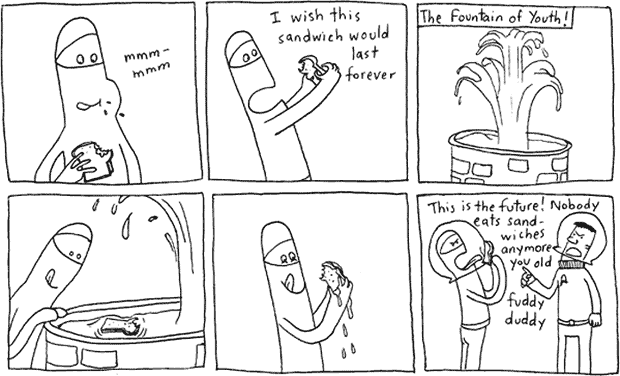 mmm-
mmm
I wish this
sandwich would
last
forever
The Fountain of Youth!
This is the future! Nobody
eats sand-
wiches
anymore
you old
fuddy
duddy